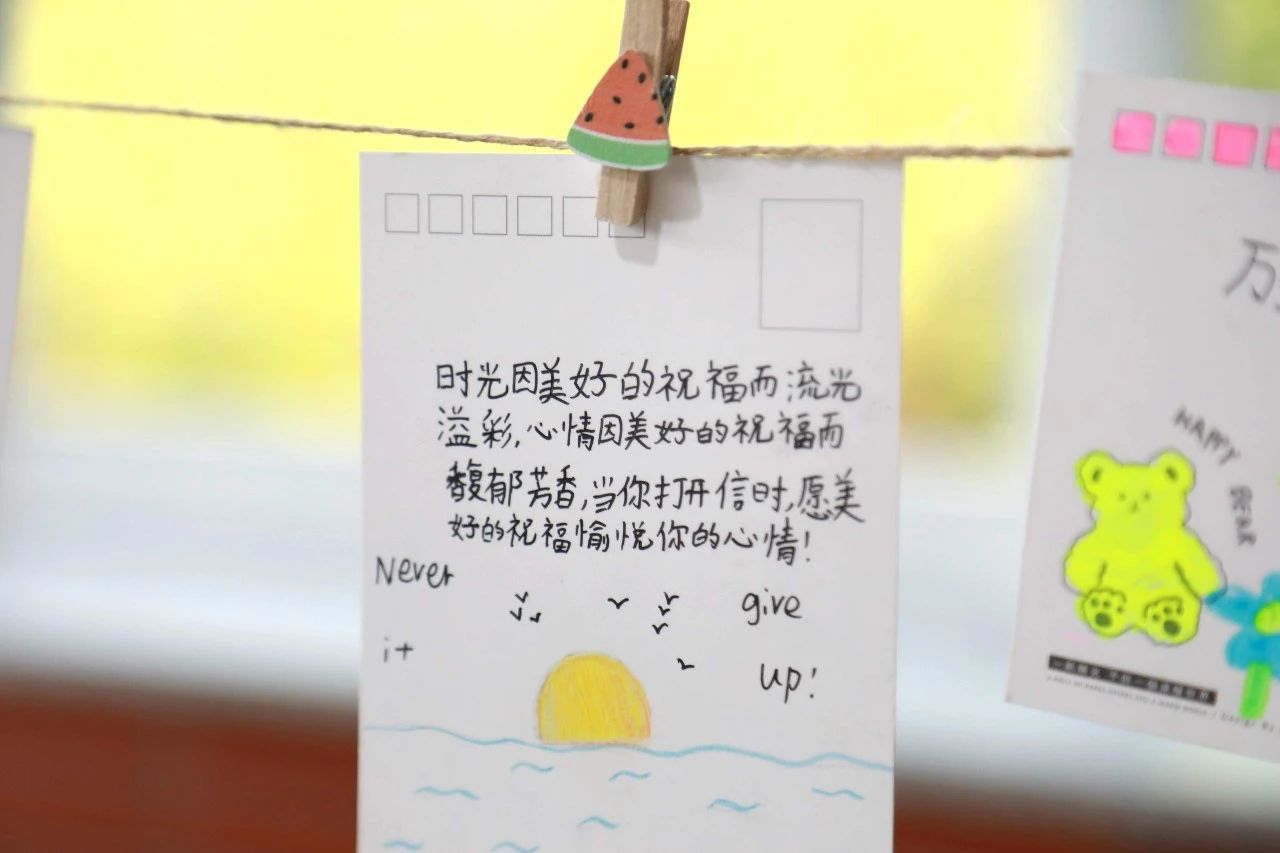 时光因美好的祝福而流光
溢彩,心情因美好的祝福而
馥郁芳香,当你打开信时,愿美
好的祝福愉悦你的心情!
Never give
it up!
万
HAPPY
BEAR